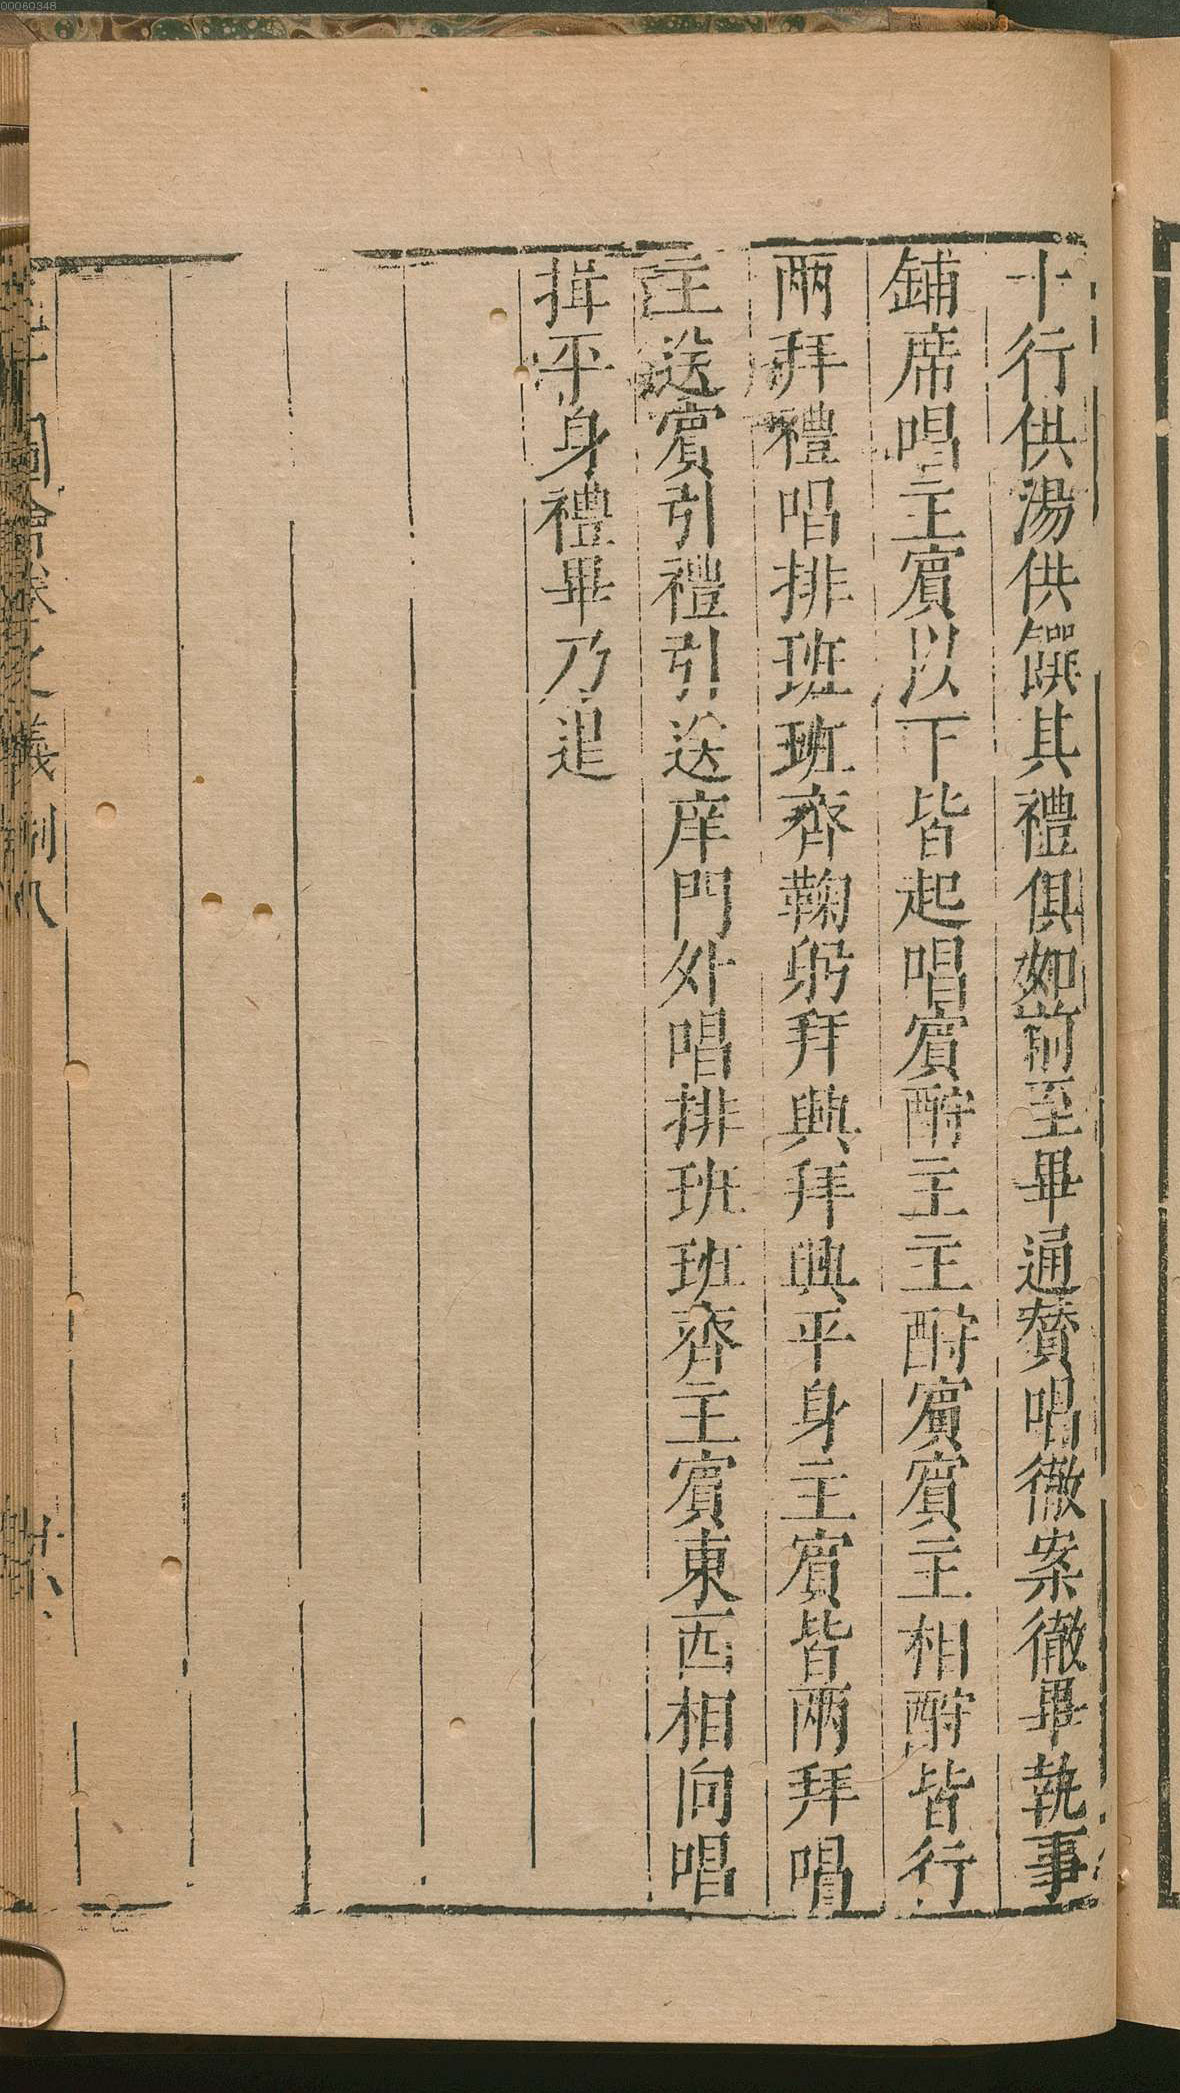 十行供湯供饌其禮俱如前至畢通贊唱徹案徹畢執事
鋪席唱主賓以下皆起唱賓酧主主酧賓賓主相酧皆行
兩拜禮唱排班班齊鞠躬拜興拜興平身主賓皆兩拜唱
主送賓引禮引送庠門外唱排班班齊主賓東西相向唱
揖平身禮畢乃退
圖會 儀制八
十八
00060348